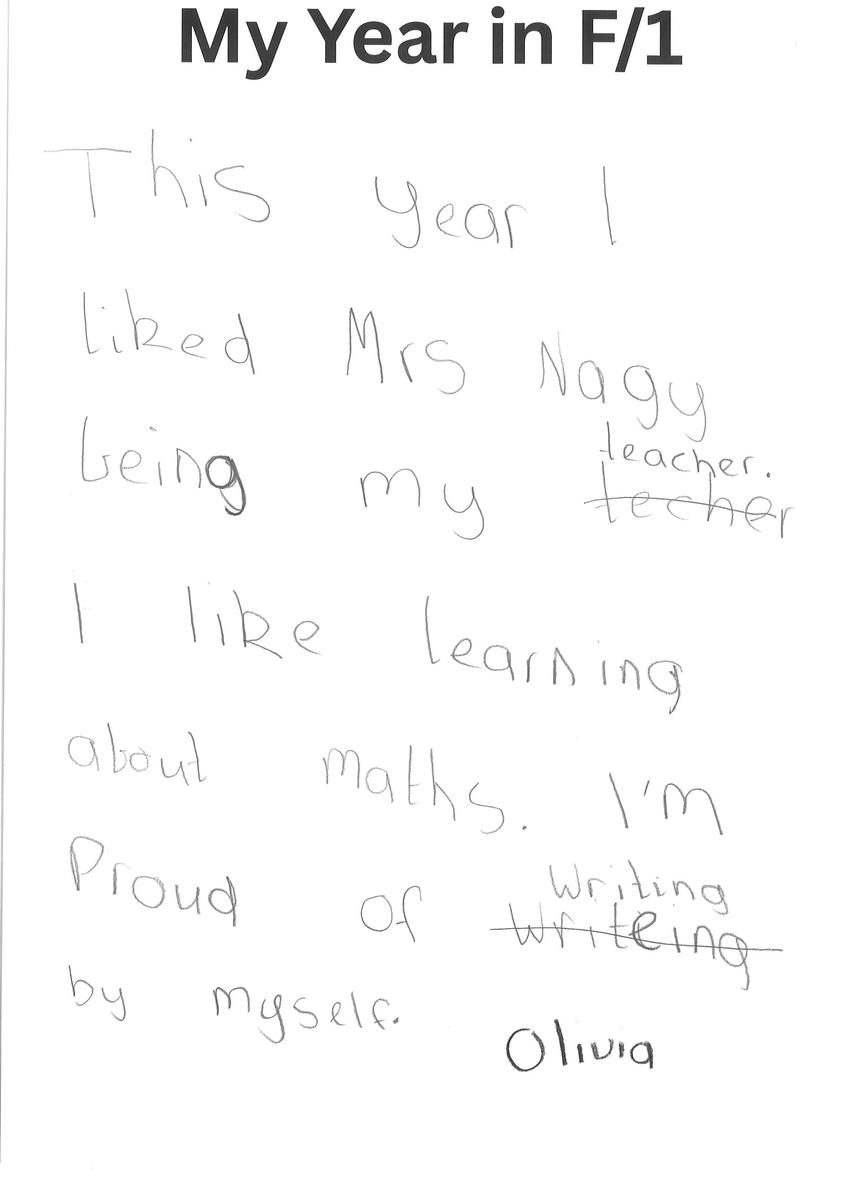 My Year in F/1
This year I
liked Mrs Nagy
being my teacher.
techer
I like learning
about maths. I'm
Proud of Writing
Writeing
by myself.
Olivia